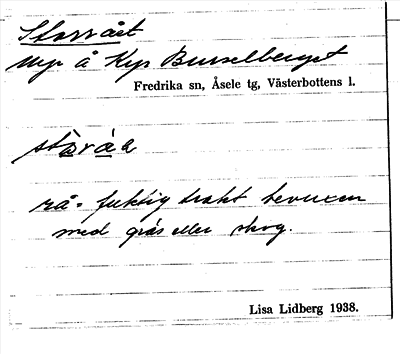 Storråst
Myr å Kyr Busselberget
Fredrika sn, Åsele tg, Västerbottens l.
rå = fuktig trakt bevuxen
med gräs eller skog.
Lisa Lidberg 1938.